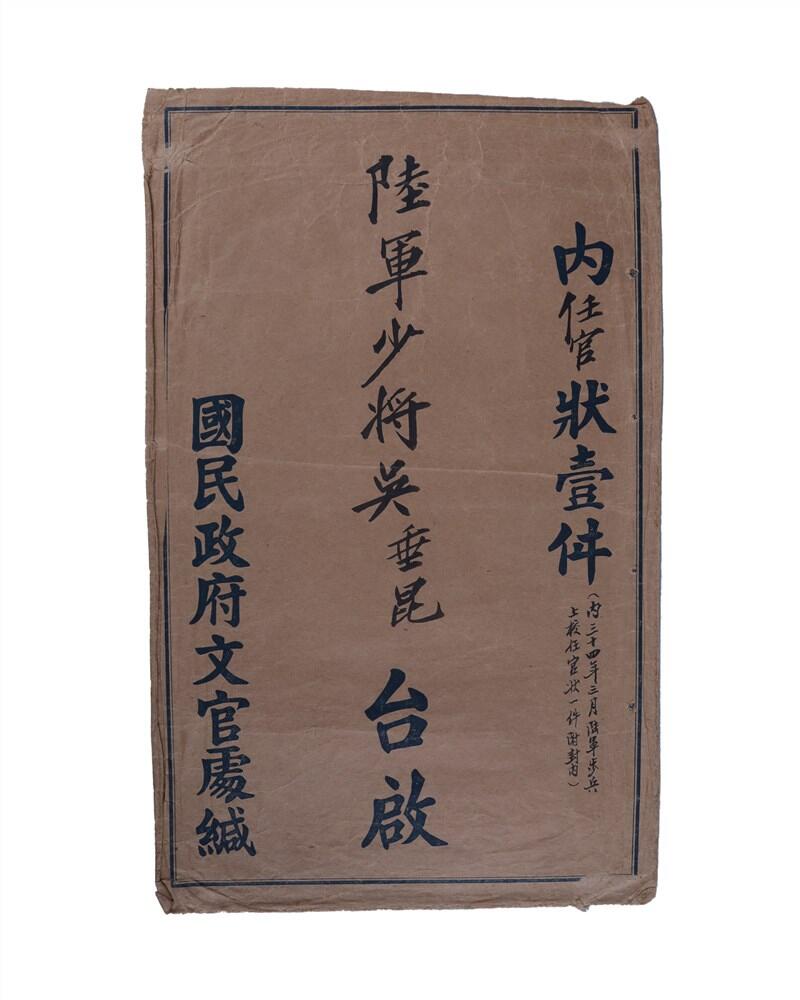 內任官狀壹件
（內三十四年三月陸軍步兵
上校任官狀一件附封內）
陸軍少將吳垂昆台啟
國民政府文官處緘